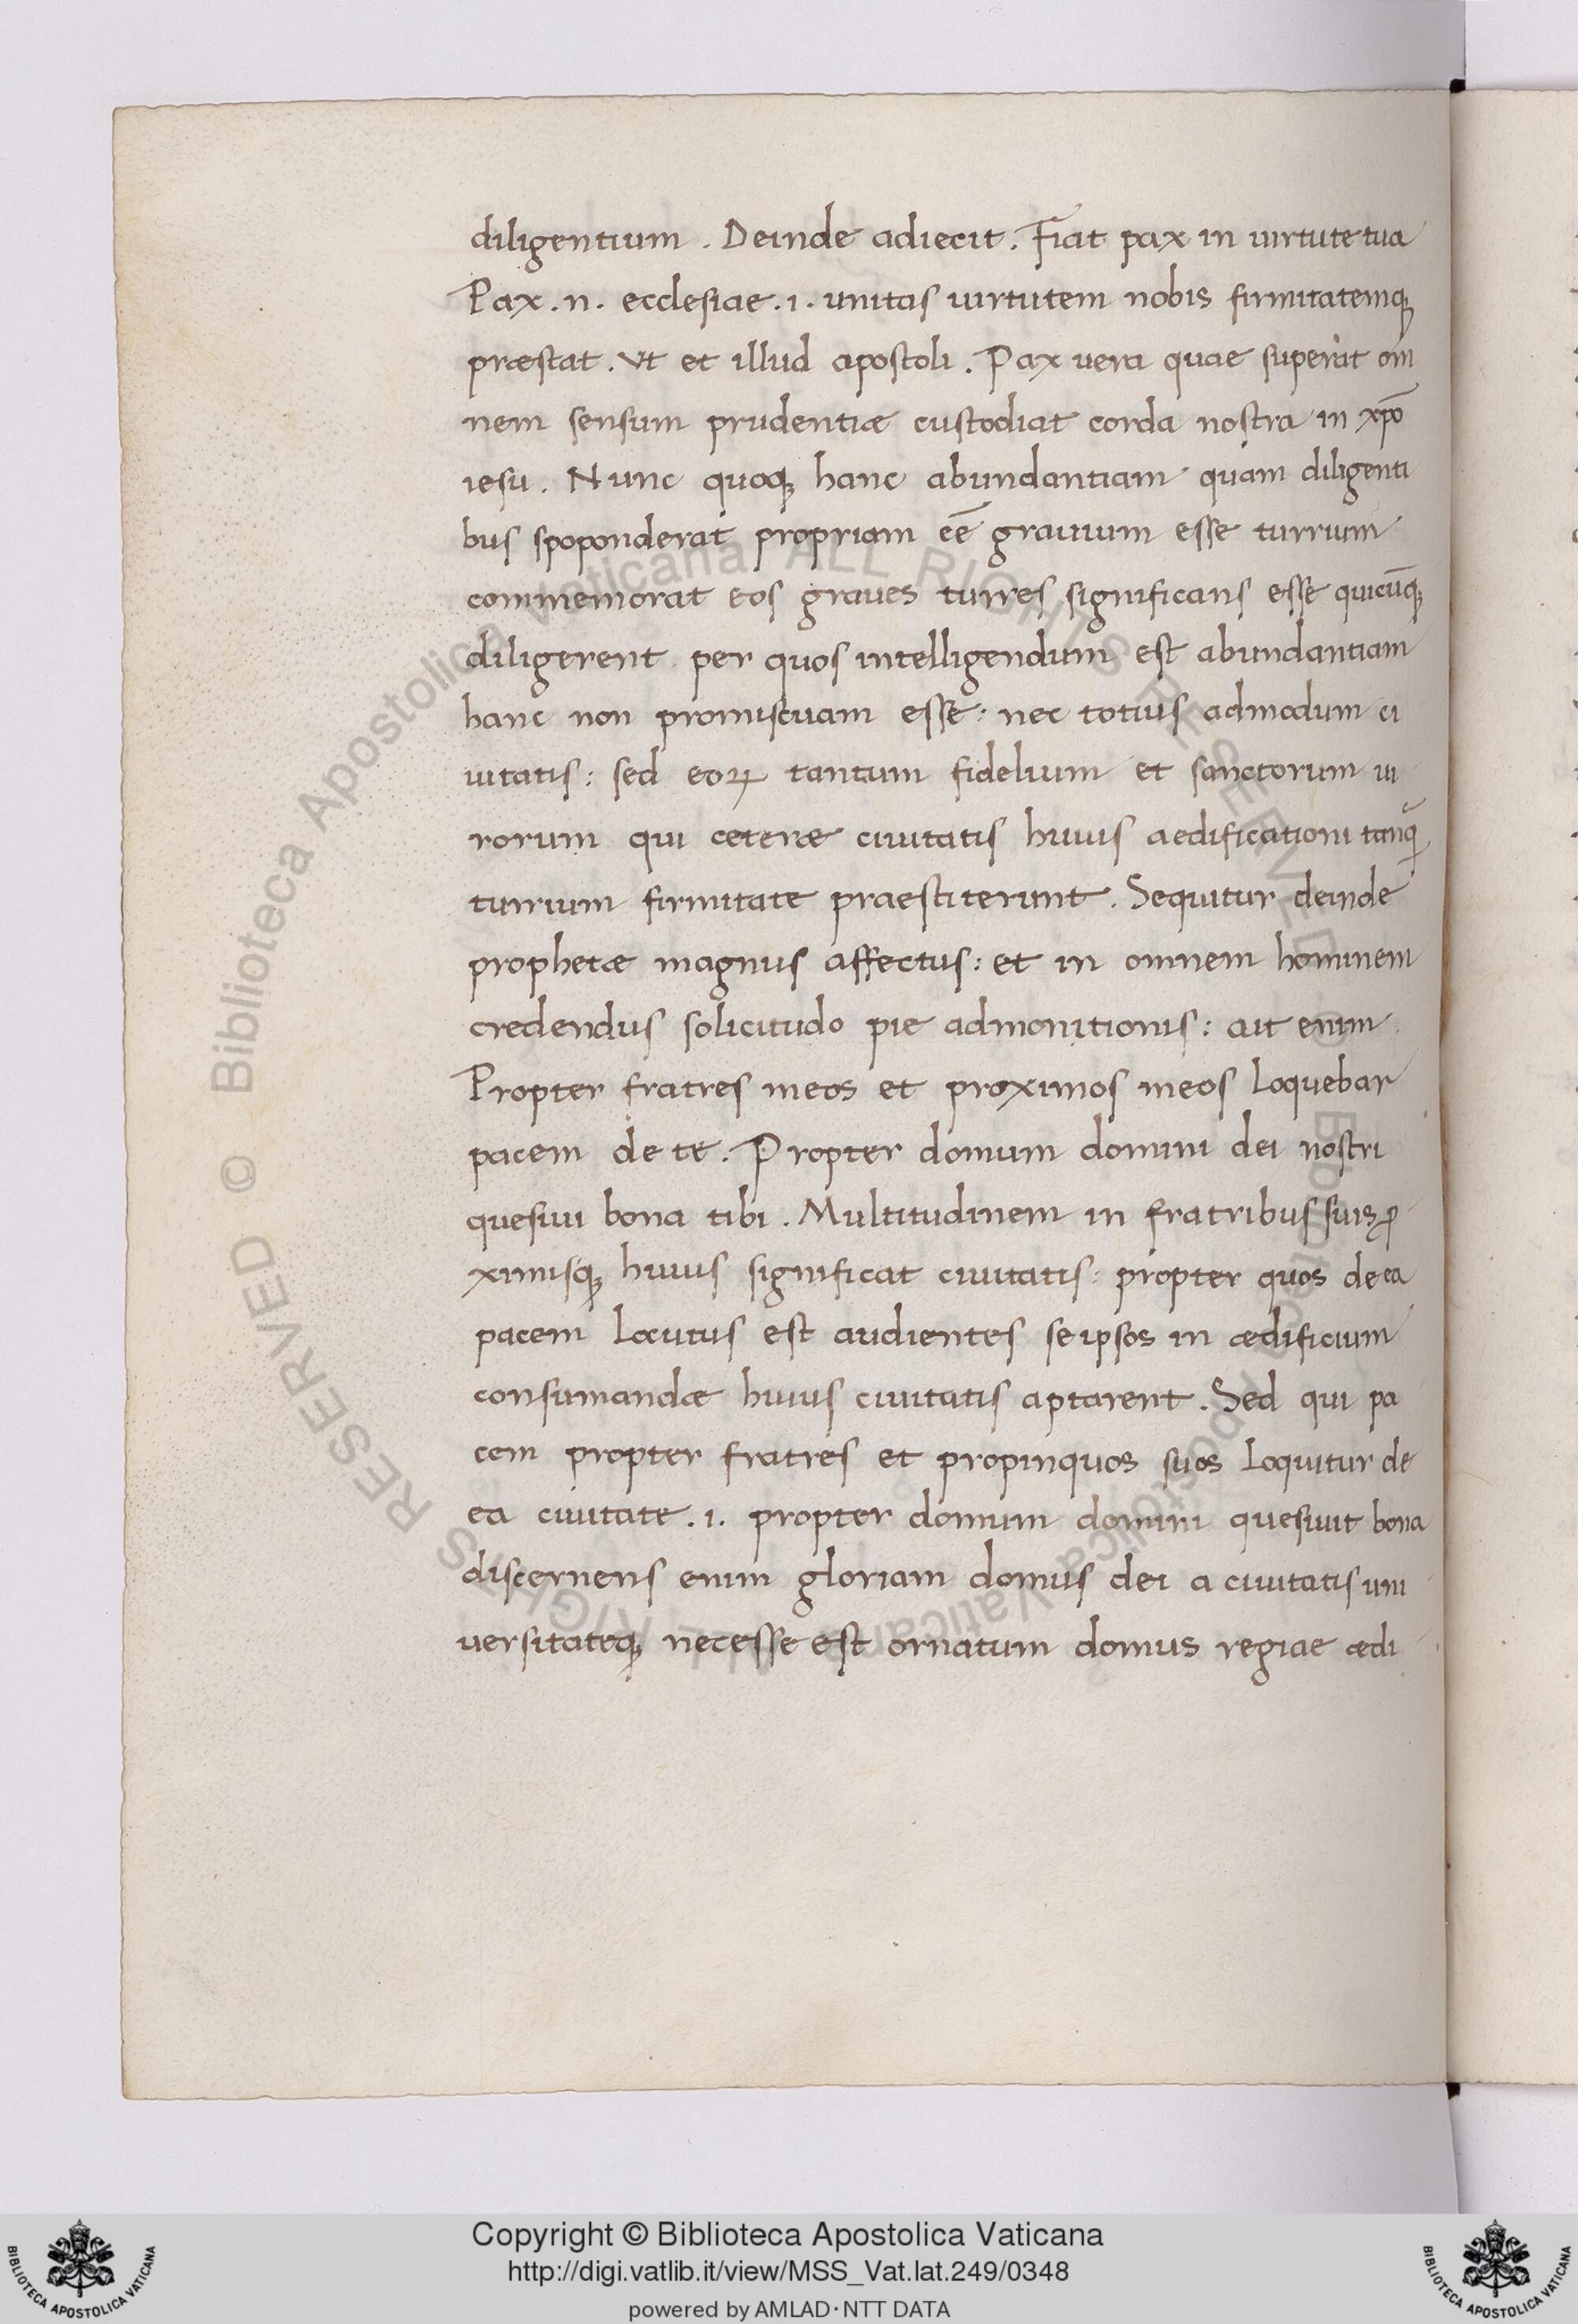 diligentium . Deinde adiecit . Fiat pax in uirtute tua
Pax . n . ecclesiae . i . unitas uirtutem nobis firmitatemq;
præstat . Vt et illud apostoli . Pax uera quae superat om
nem sensum prudentiæ custodiat corda nostra in xp̄o
iesu . Nunc quoq; hanc abundantiam quam diligenti
bus spoponderat propriam eē grauium esse turrium
commemorat eos graues turres significans esse quicūq;
diligerent per quos intelligendum est abundantiam
hanc non promiscuam esse : nec totius admodum ci
uitatis : sed eoꝝ tantum fidelium et sanctorum ui
rorum qui ceteræ ciuitatis huius aedificationi tanq̃
turrium firmitate praestiterunt . Sequitur deinde
prophetæ magnus affectus : et in omnem hominem
credendus solicitudo pie admonitionis : ait enim
Propter fratres meos et proximos meos loquebar
pacem de te . Propter domum domini dei nostri
quesiui bona tibi . Multitudinem in fratribus suis ꝓ
ximisq; huius significat ciuitatis : propter quos de ea
pacem locutus est audientes se ipsos in ædificium
consumandæ huius ciuitatis aptarent . Sed qui pa
cem propter fratres et propinquos suos loquitur de
ea ciuitate . i . propter domum domini quesiuit bona
discernens enim gloriam domus dei a ciuitatis uni
uersitateq; necesse est ornatum domus regiae ædi
Biblioteca Apostolica Vaticana ALL RIGHTS RESERVED © Biblioteca Apostolica Vaticana ALL RIGHTS RESERVED ©
Copyright © Biblioteca Apostolica Vaticana
http://digi.vatlib.it/view/MSS_Vat.lat.249/0348
powered by AMLAD·NTT DATA
BIBLIOTECA APOSTOLICA VATICANA
BIBLIOTECA APOSTOLICA VATICANA